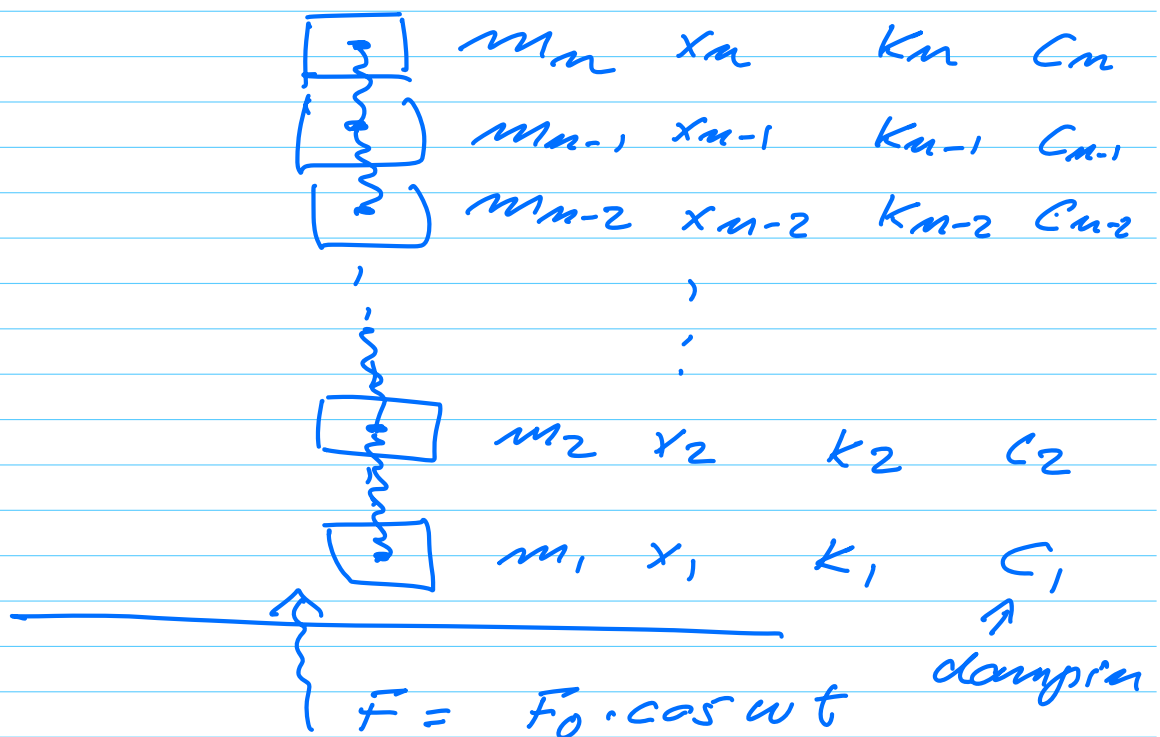 m_n x_n K_n C_n
m_n-1 x_n-1 K_n-1 C_n-1
m_n-2 x_n-2 K_n-2 C_n-2
m_2 x_2 K_2 C_2
m_1 x_1 K_1 C_1
dampin
F = F_0 · cos ω t